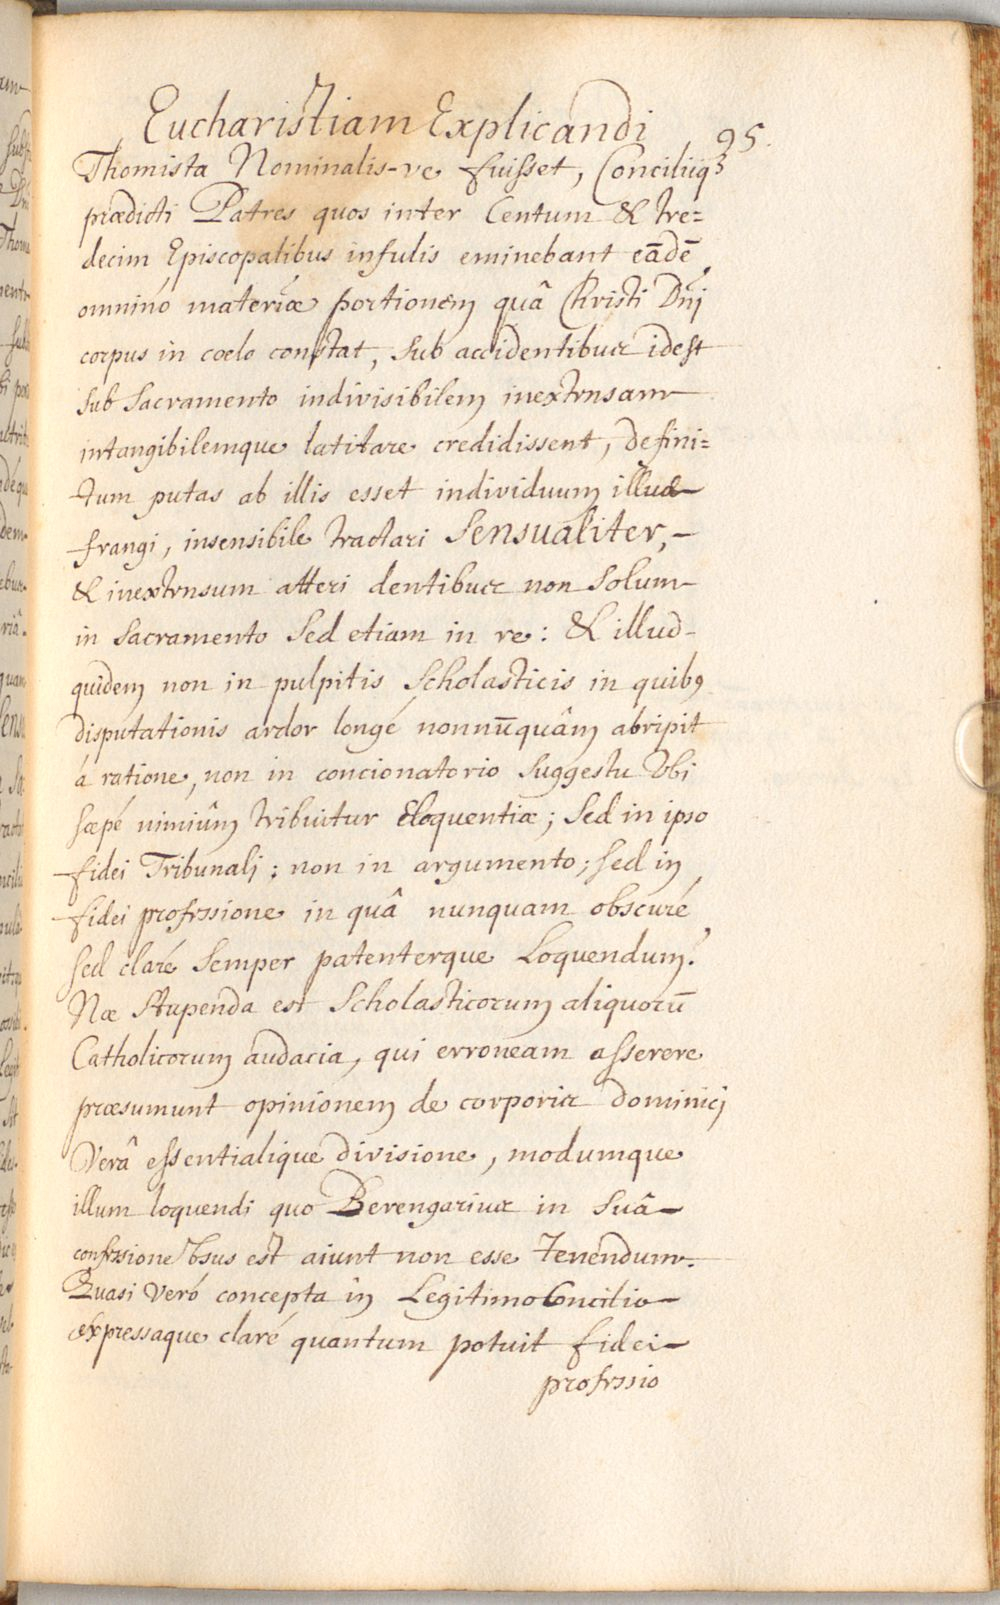 Eucharistiam Explicandi
95.
Thomista Nominalis-ve fuisset, Conciliiqꝫ
prædicti Patres quos inter Centum & tre=
decim Episcopalibus infulis eminebant eādē
omninó materiæ portionem quâ Christi Dni
corpus in coelo constat, sub accidentibus idest
sub Sacramento indivisibilem inextensam
intangibilemque latitare credidissent, defini=
tum putas ab illis esset individuum illud
frangi, insensibile tractari Sensualiter,
& inextensum atteri dentibus non Solum
in Sacramento Sed etiam in re: & illud
quidem non in pulpitis Scholasticis in quibꝰ
disputationis ardor longé nonnūquâm abripit
á ratione, non in concionatorio Suggestu Vbi
sæpé nimiûm tribuitur Eloquentiæ; Sed in ipso
fidei Tribunali; non in argumento; sed in
fidei professione in quâ nunquam obscuré
sed claré Semper patenterque Loquendum?
Næ Stupenda est Scholasticorum aliquorū
Catholicorum audacia, qui erroneam asserere
præsumunt opinionem de corporis dominici
Verâ essentialique divisione, modumque
illum loquendi quo Berengarius in Suâ
confessione Vsus est aiunt non esse tenendum.
Quasi Veró concepta in Legitimo Concilio
expressaque claré quantum potuit fidei
professio